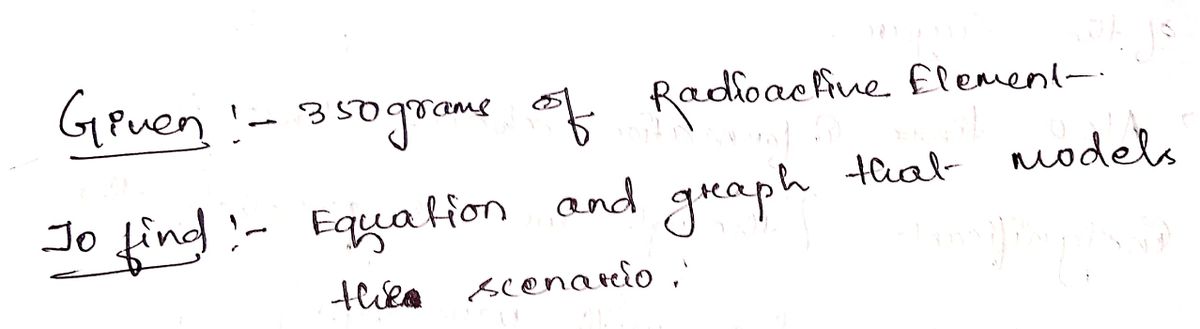 Given :- 350grams of Radioactive Element.
To find :- Equation and graph that models
this scenario.